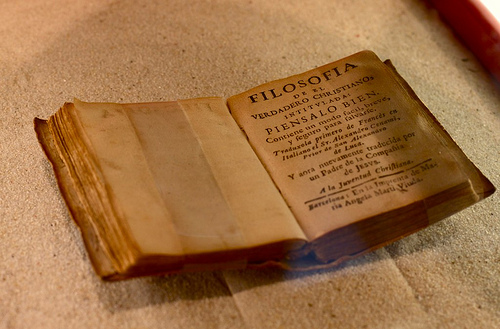 FILOSOFIA
DE EL
VERDADERO CHRISTIANO,
INTITULADA:
PIENSALO BIEN.
Contiene un modo facil, breve,
y seguro para salvarse.
Traduxola primero de Francès en
Italiano el Sr. Alexandro
Prior de San Alexandro
de Luca.
Y aora nuevamente traducida por
un Padre de la Compañia
de JESVS.
A la Juventud Christiana.
Barcelona: En la Imprenta de Ma-
ria Angela Martì Viuda.